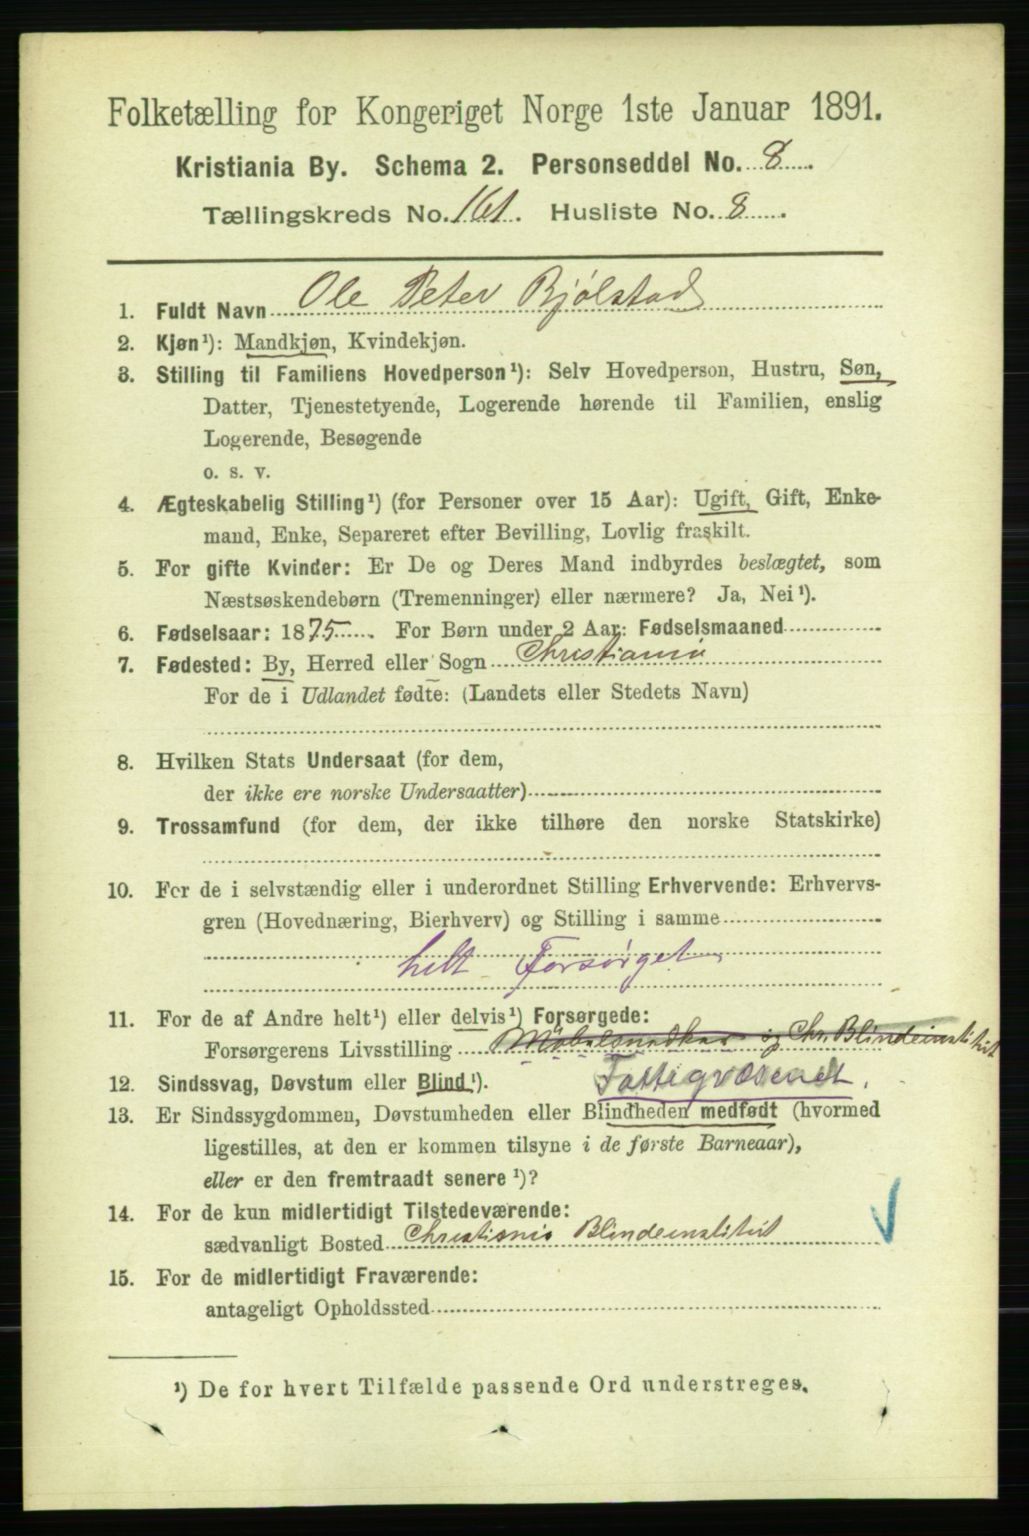 Folketælling for Kongeriget Norge 1ste Januar 1891.
Kristiania By. Schema 2. Personseddel No. 8.
Tællingskreds No. 161. Husliste No. 8.
1. Fuldt Navn Ole Peter Bjølstad
2. Kjøn¹): Mandkjøn, Kvindekjøn.
3. Stilling til Familiens Hovedperson¹): Selv Hovedperson, Hustru, Søn,
Datter, Tjenestetyende, Logerende hørende til Familien, enslig
Logerende, Besøgende
o. s. v.
4. Ægteskabelig Stilling¹) (for Personer over 15 Aar): Ugift, Gift, Enke-
mand, Enke, Separeret efter Bevilling, Lovlig fraskilt.
5. For gifte Kvinder: Er De og Deres Mand indbyrdes beslægtet, som
Næstsøskendebørn (Tremenninger) eller nærmere? Ja, Nei¹).
6. Fødselsaar: 1875. For Børn under 2 Aar: Fødselsmaaned
7. Fødested: By, Herred eller Sogn Christiania
For de i Udlandet fødte: (Landets eller Stedets Navn)
8. Hvilken Stats Undersaat (for dem,
der ikke ere norske Undersaatter)
9. Trossamfund (for dem, der ikke tilhøre den norske Statskirke)
10. For de i selvstændig eller i underordnet Stilling Erhvervende: Erhvervs-
gren (Hovednæring, Bierhverv) og Stilling i samme
helt Forsørget
11. For de af Andre helt¹) eller delvis¹) Forsørgede:
Forsørgerens Livsstilling Møbelsnedker og Chr. Blindeinstitut
12. Sindssvag, Døvstum eller Blind¹). Fattigvæsenet.
13. Er Sindssygdommen, Døvstumheden eller Blindheden medfødt (hvormed
ligestilles, at den er kommen tilsyne i de første Barneaar),
eller er den fremtraadt senere¹)?
14. For de kun midlertidigt Tilstedeværende:
sædvanligt Bosted Christiania Blindeinstitut
15. For de midlertidigt Fraværende:
antageligt Opholdssted
¹) De for hvert Tilfælde passende Ord understreges.